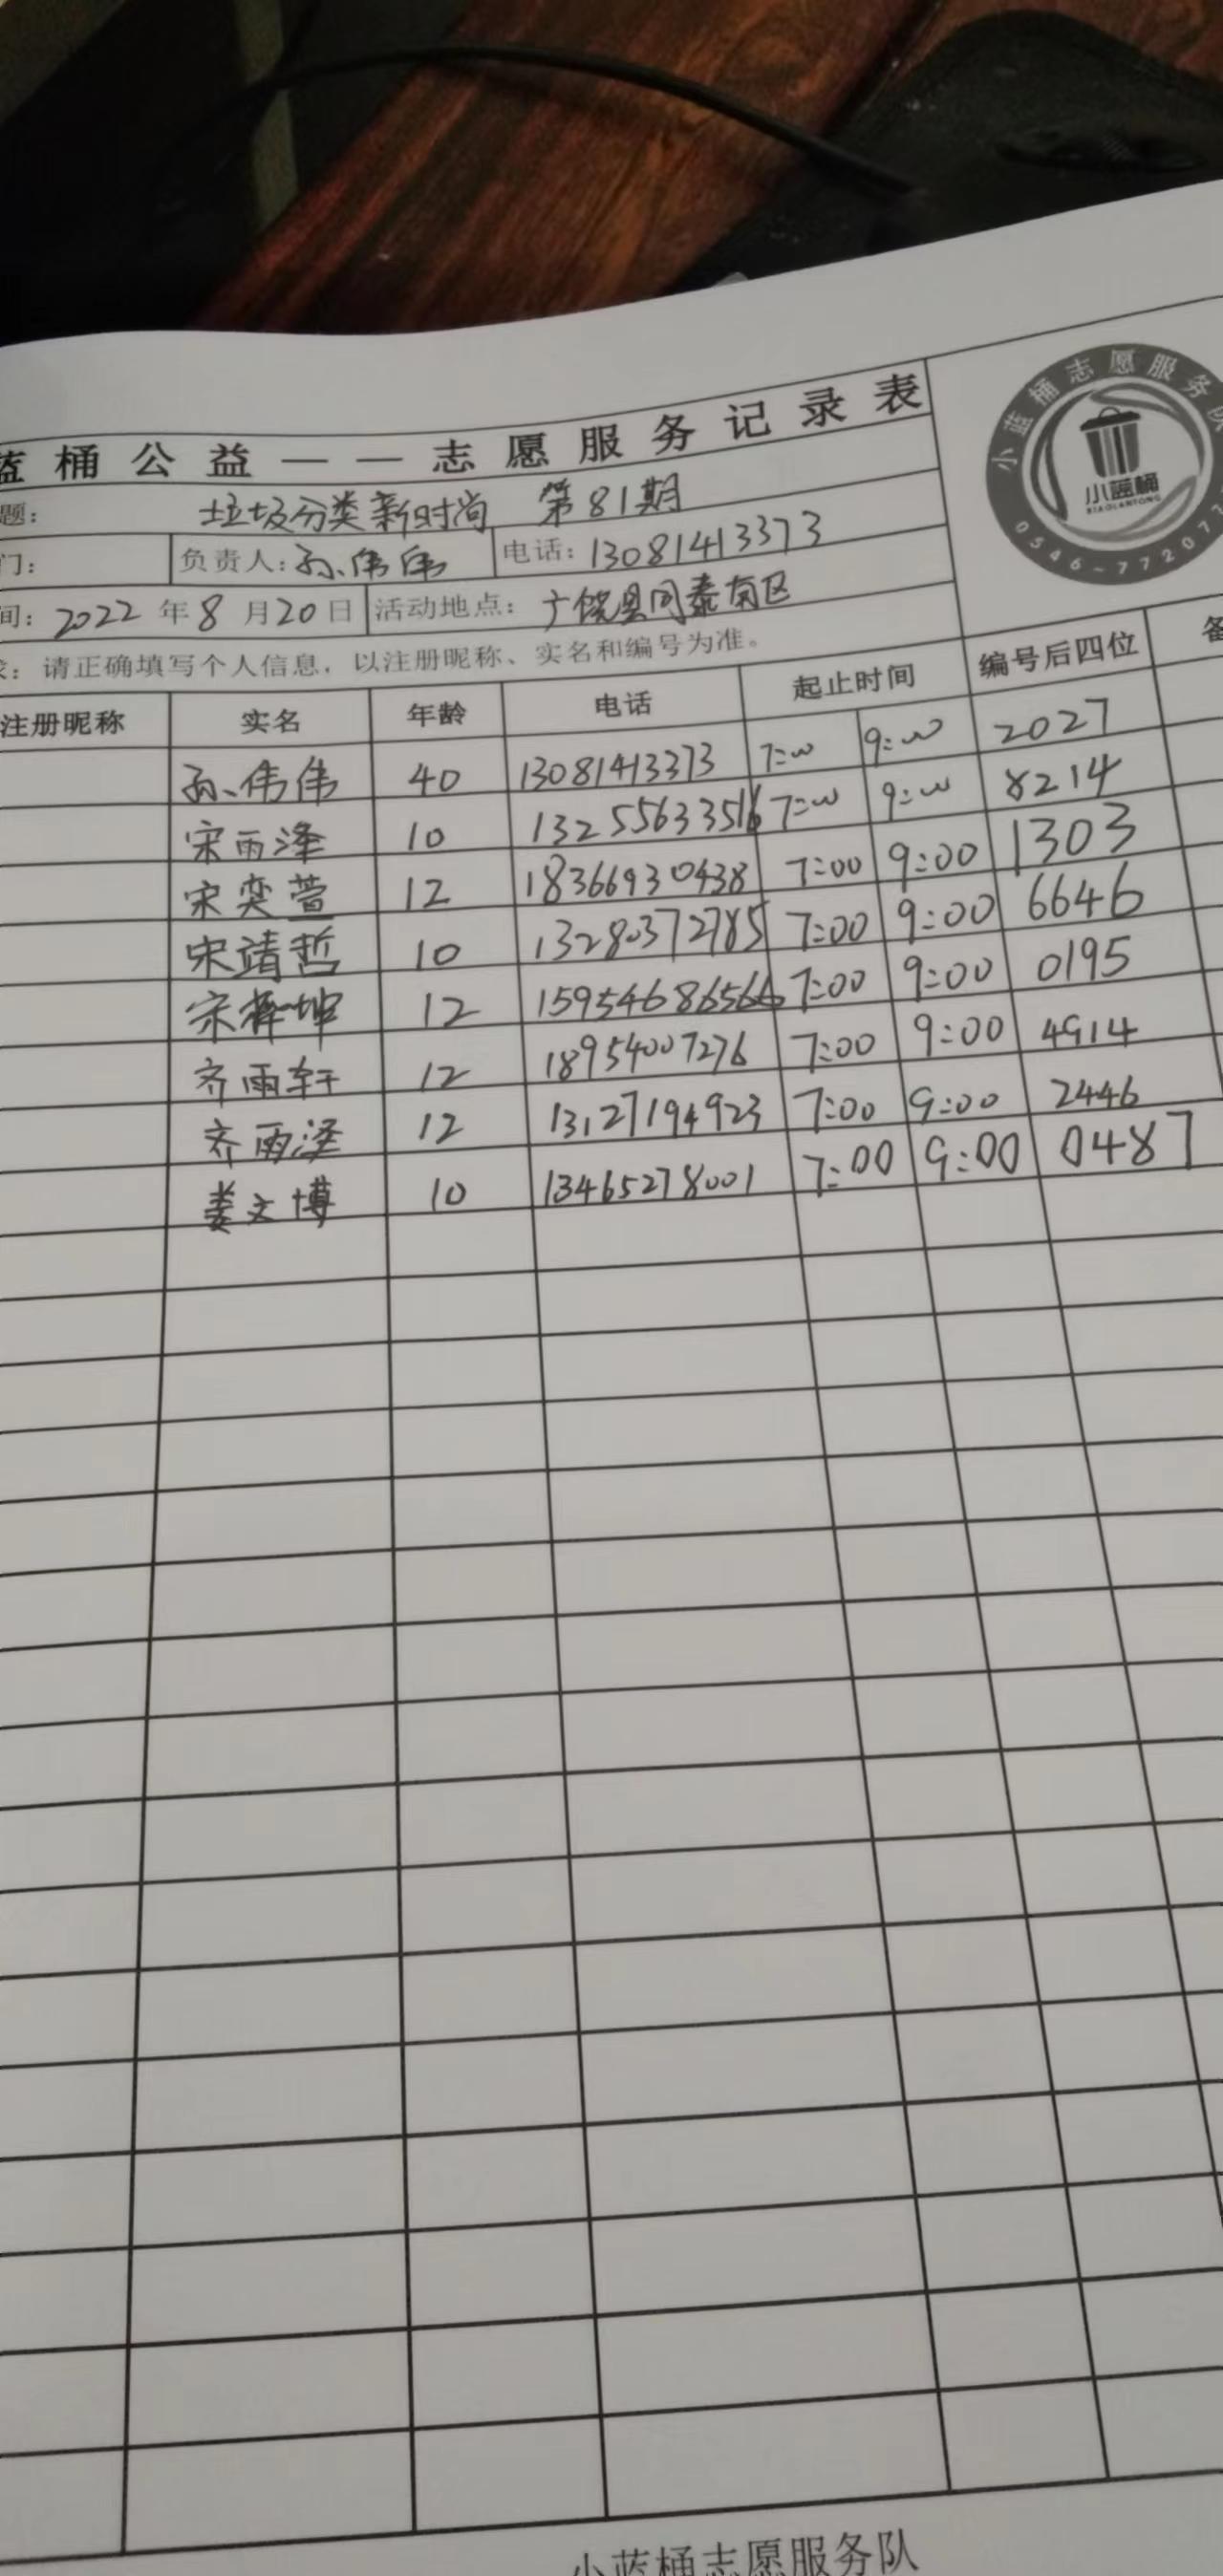 蓝桶公益——志愿服务记录表
题: 垃圾分类新时尚 第81期
门: 负责人: 孙伟伟 电话: 13081413373
间: 2022年8月20日 活动地点: 广饶县同泰南区
求: 请正确填写个人信息，以注册昵称、实名和编号为准。
注册昵称 实名 年龄 电话 起止时间 编号后四位 备
孙伟伟 40 13081413373 7:00 9:00 2027
宋雨泽 10 7:00 9:00 8214
宋奕萱 12 18366930438 7:00 9:00 1303
宋靖哲 10 13280372785 7:00 9:00 6646
宋梓坤 12 15954686566 7:00 9:00 0195
齐雨轩 12 18954007276 7:00 9:00 4914
齐雨泽 12 13127194923 7:00 9:00 2446
姜文博 10 13465278001 7:00 9:00 0487
小蓝桶志愿服务队
小蓝桶
XIAOLANTONG
0546-772077
小蓝桶志愿服务队